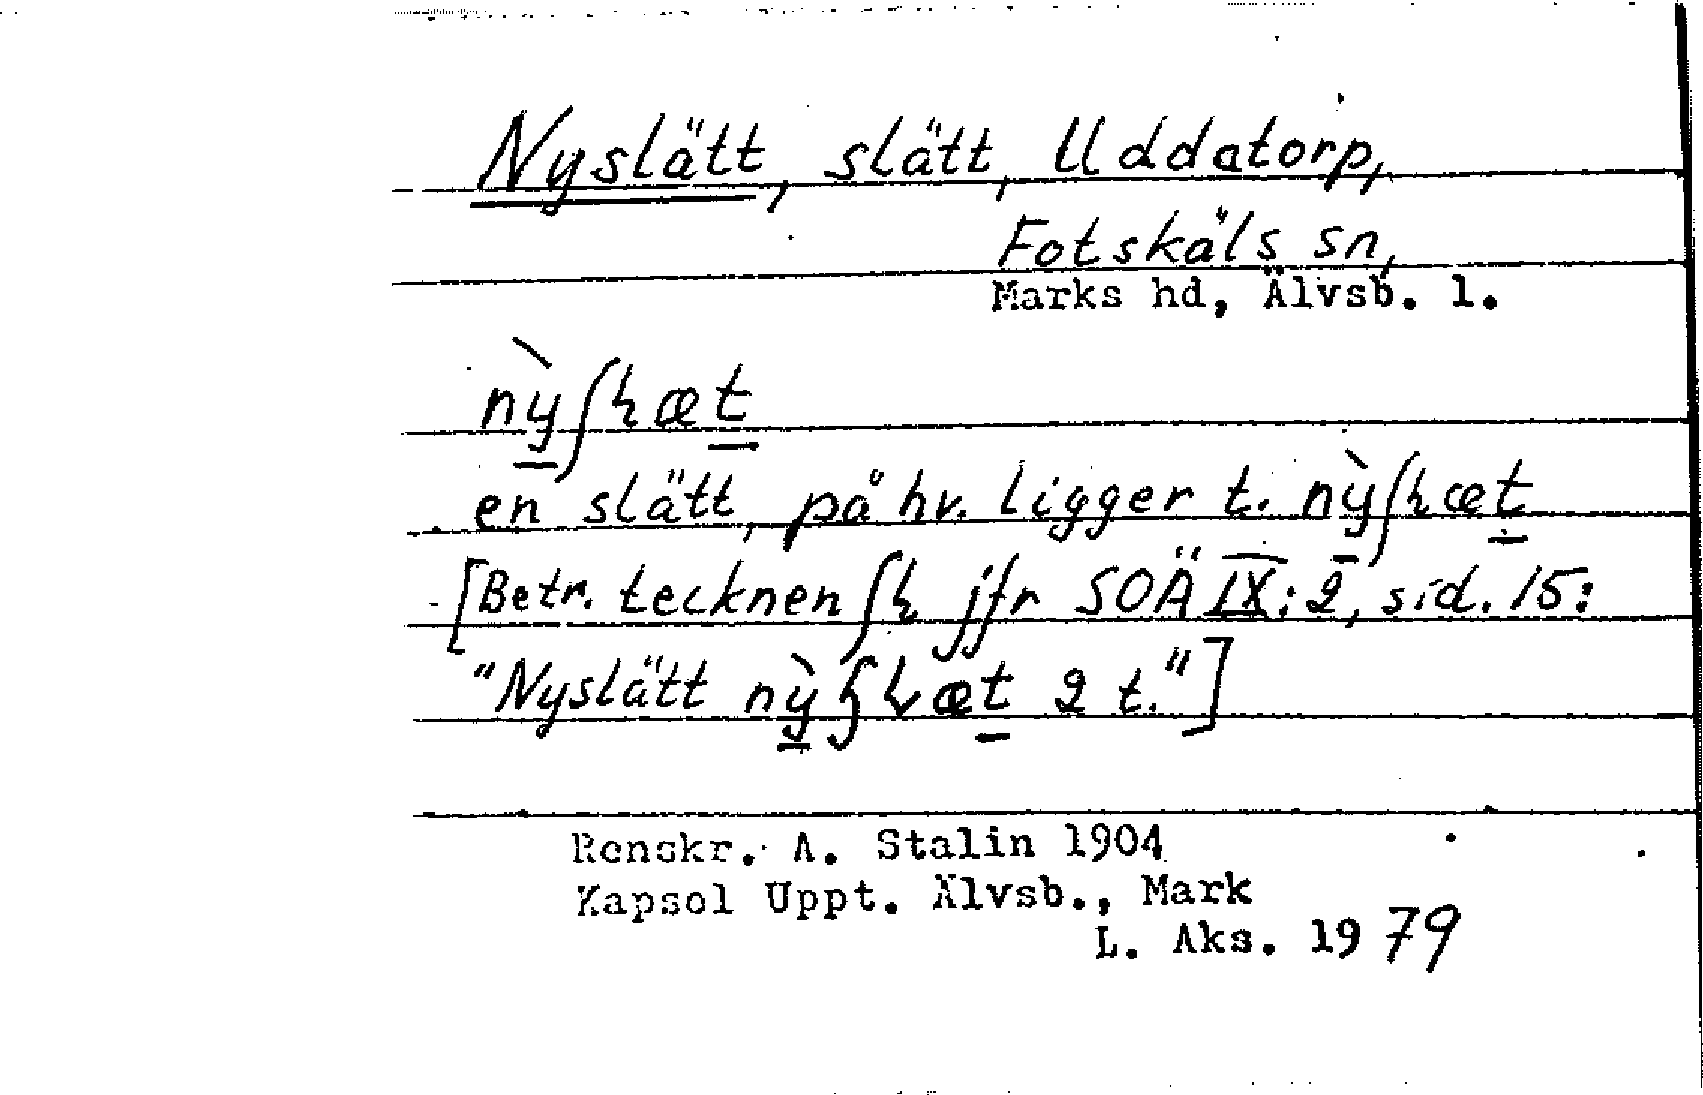 Nyslätt, slätt, Uddatorp,
Fotskäls sn,
Marks hd, Älvsb. l.
nỳʃꜧæt
en slätt, på hv. ligger t. nỳʃꜧæt
[Betr. tecknen ʃꜧ jfr SOÄ IX: 2, sid. 15:
"Nyslätt nỳ æt 2 t."]
Renskr. A. Stalin 1904
Kapsel Uppt. Älvsb., Mark
L. Aks. 1979